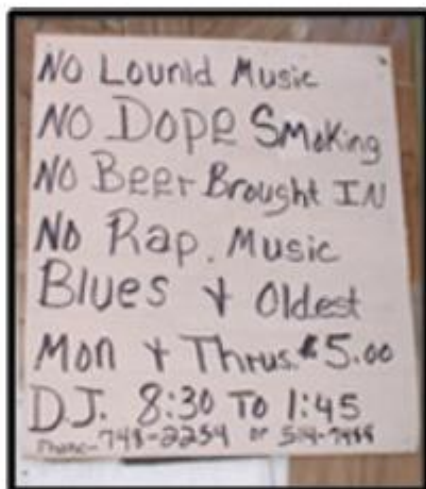 NO Lounld Music
NO DOPE SMoKing
NO Beer Brought IN
No Rap. Music
Blues + Oldest
Mon + Thrus. $5.00
D.J. 8:30 TO 1:45
Phone- 748-2254 or